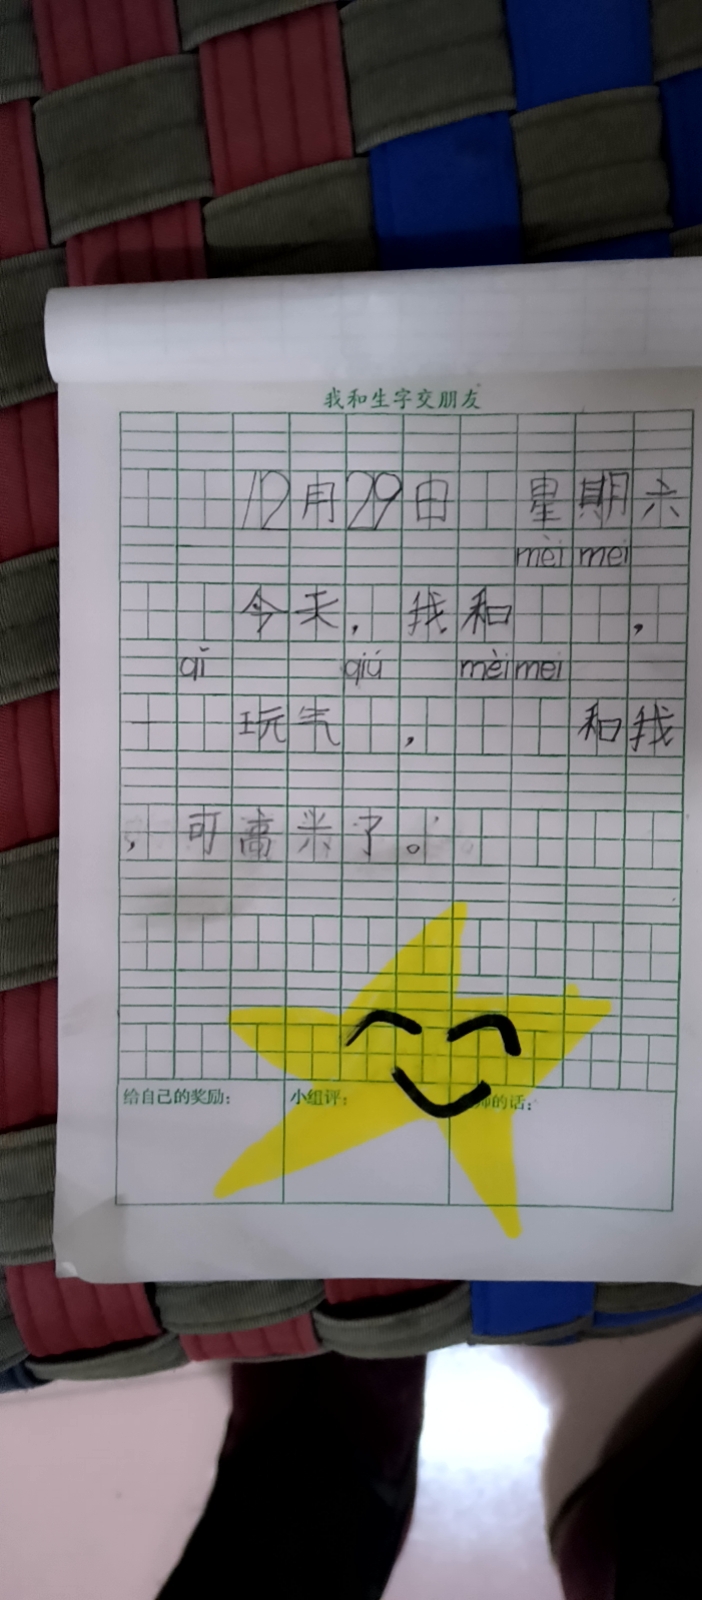 我和生字交朋友
12月29日 星期六
mèi mei
今天,我和 ,
qǐ qiú mèi mei
玩气 , 和我
,可高米了。
给自己的奖励: 小组评: 师的话: